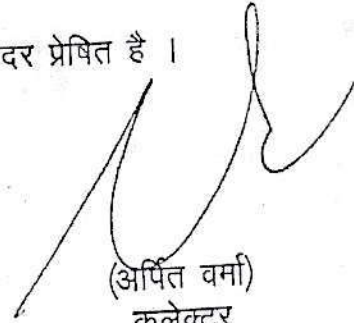 दर प्रेषित है ।
(अर्पित वर्मा)
कलेक्टर